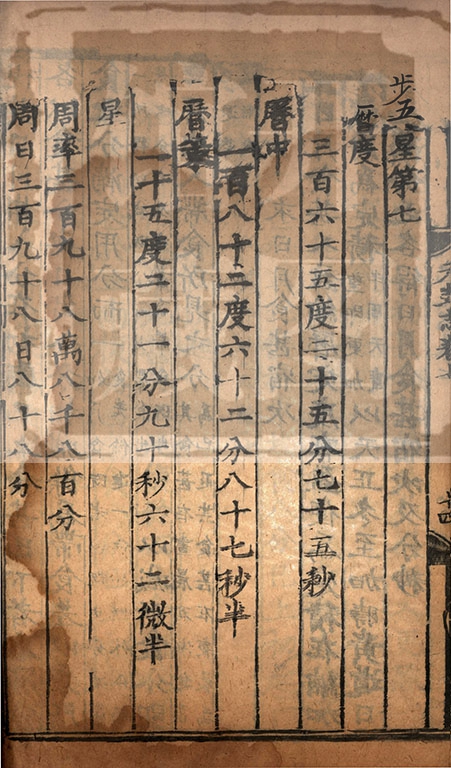 步五星第七
曆度
三百六十五度二十五分七十五秒
曆中
一百八十二度六十二分八十七秒半
曆策
一十五度二十一分九十秒六十二微半
星
周率三百九十八萬八千八百分
周日三百九十八日八十八分